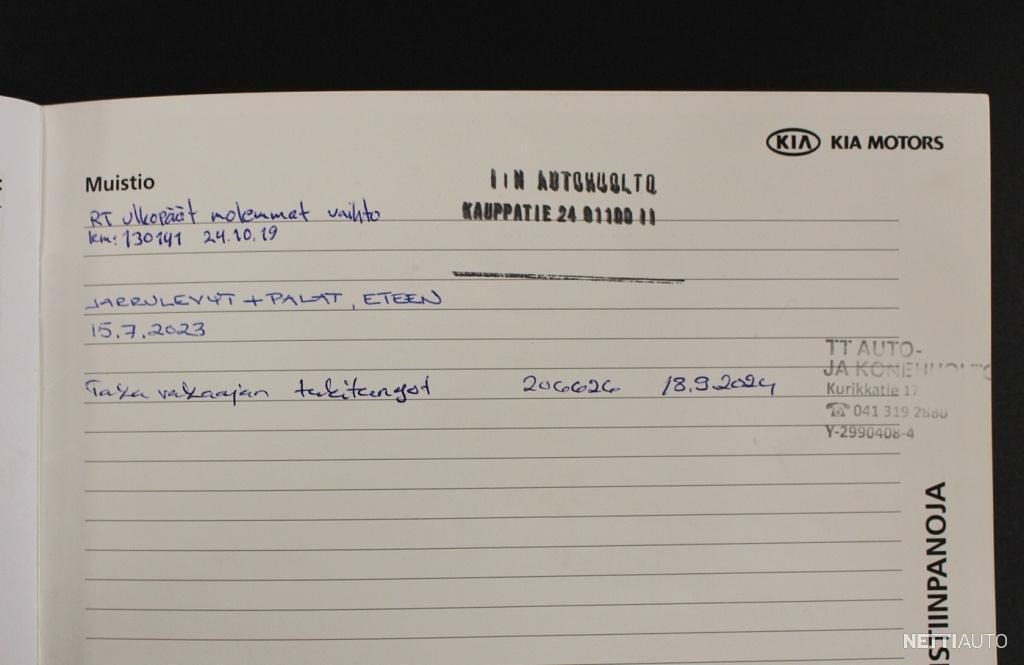 KIA KIA MOTORS
Muistio
IIN AUTOHUOLTO
KAUPPATIE 24 91100 II
RT ulkopäät molemmat vaihto
km: 130141 24.10.19
JARRULEVYT + PALAT, ETEEN
15.7.2023
Taka vakaajan tukitangot 206626 18.9.2024
TT AUTO-
JA KONEHUOLTO
Kurikkatie 17
☎ 041 319 2880
Y-2990408-4
STIINPANOJA
NETTIAUTO